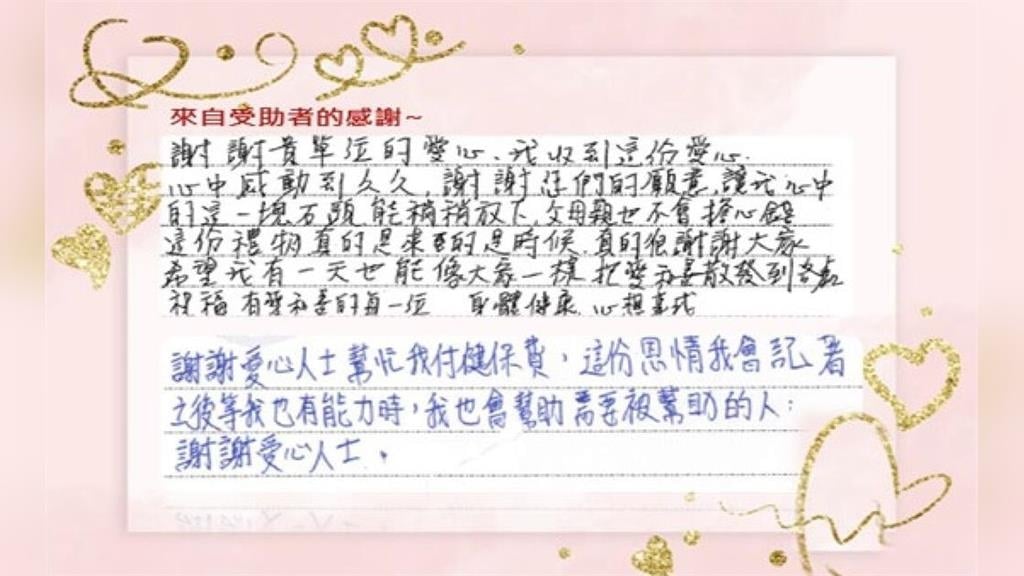 來自受助者的感謝~
謝謝貴單位的愛心、我收到這份愛心.
心中感動到久久,謝謝您們的願意,讓我心中
的這一塊石頭能稍稍放下,父母親也不會擔心錢
這份禮物真的是來的是時候,真的很謝謝大家
希望我有一天也能像大家一樣把愛和善散發到各處
祝福有愛和善的每一位 身體健康、心想事成
謝謝愛心人士幫忙我付健保費,這份恩情我會記著
之後等我也有能力時,我也會幫助需要被幫助的人:
謝謝愛心人士.